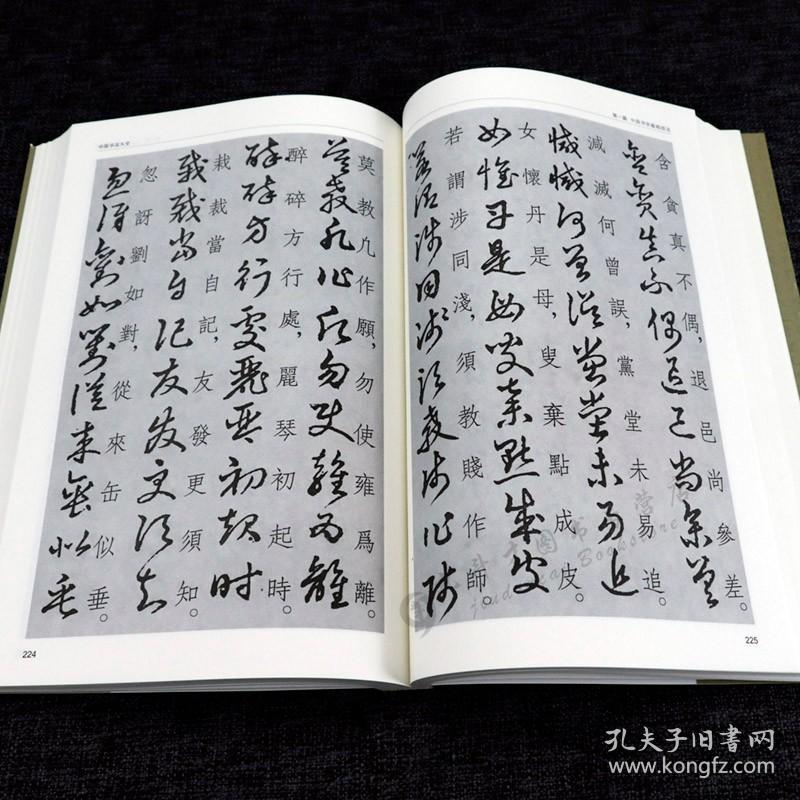 中国书法大全
莫教凡作願，勿使雍爲離。
醉碎方行處，麗琴初起時。
栽裁當自記，友發更須知。
忽訝劉如對，從來缶似垂。
224
含貪真不偶，退邑尚參差。
減滅何曾誤，黨堂未易追。
女懷丹是母，叟棄點成皮。
若謂涉同淺，須教賤作師。
225
孔夫子旧书网
www.kongfz.com